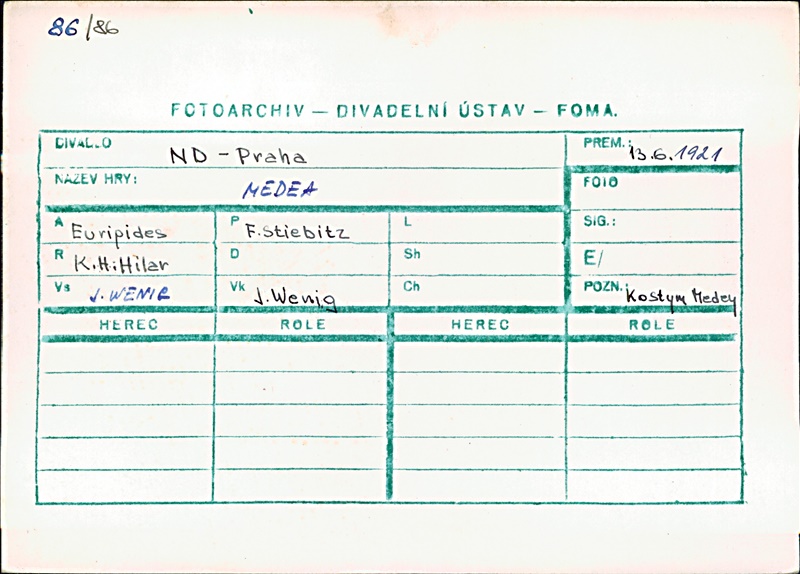 86/86
FOTOARCHIV — DIVADELNÍ ÚSTAV — FOMA.
DIVADLO ND - Praha
PREM.: 13.6.1921
NÁZEV HRY: MEDEA
FOTO
A Euripides P F. Stiebitz L SIG.:
R K.H. Hilar D Sh E/
Vs J. WENIG Vk J. Wenig Ch POZN.: Kostym Medey
HEREC ROLE HEREC ROLE